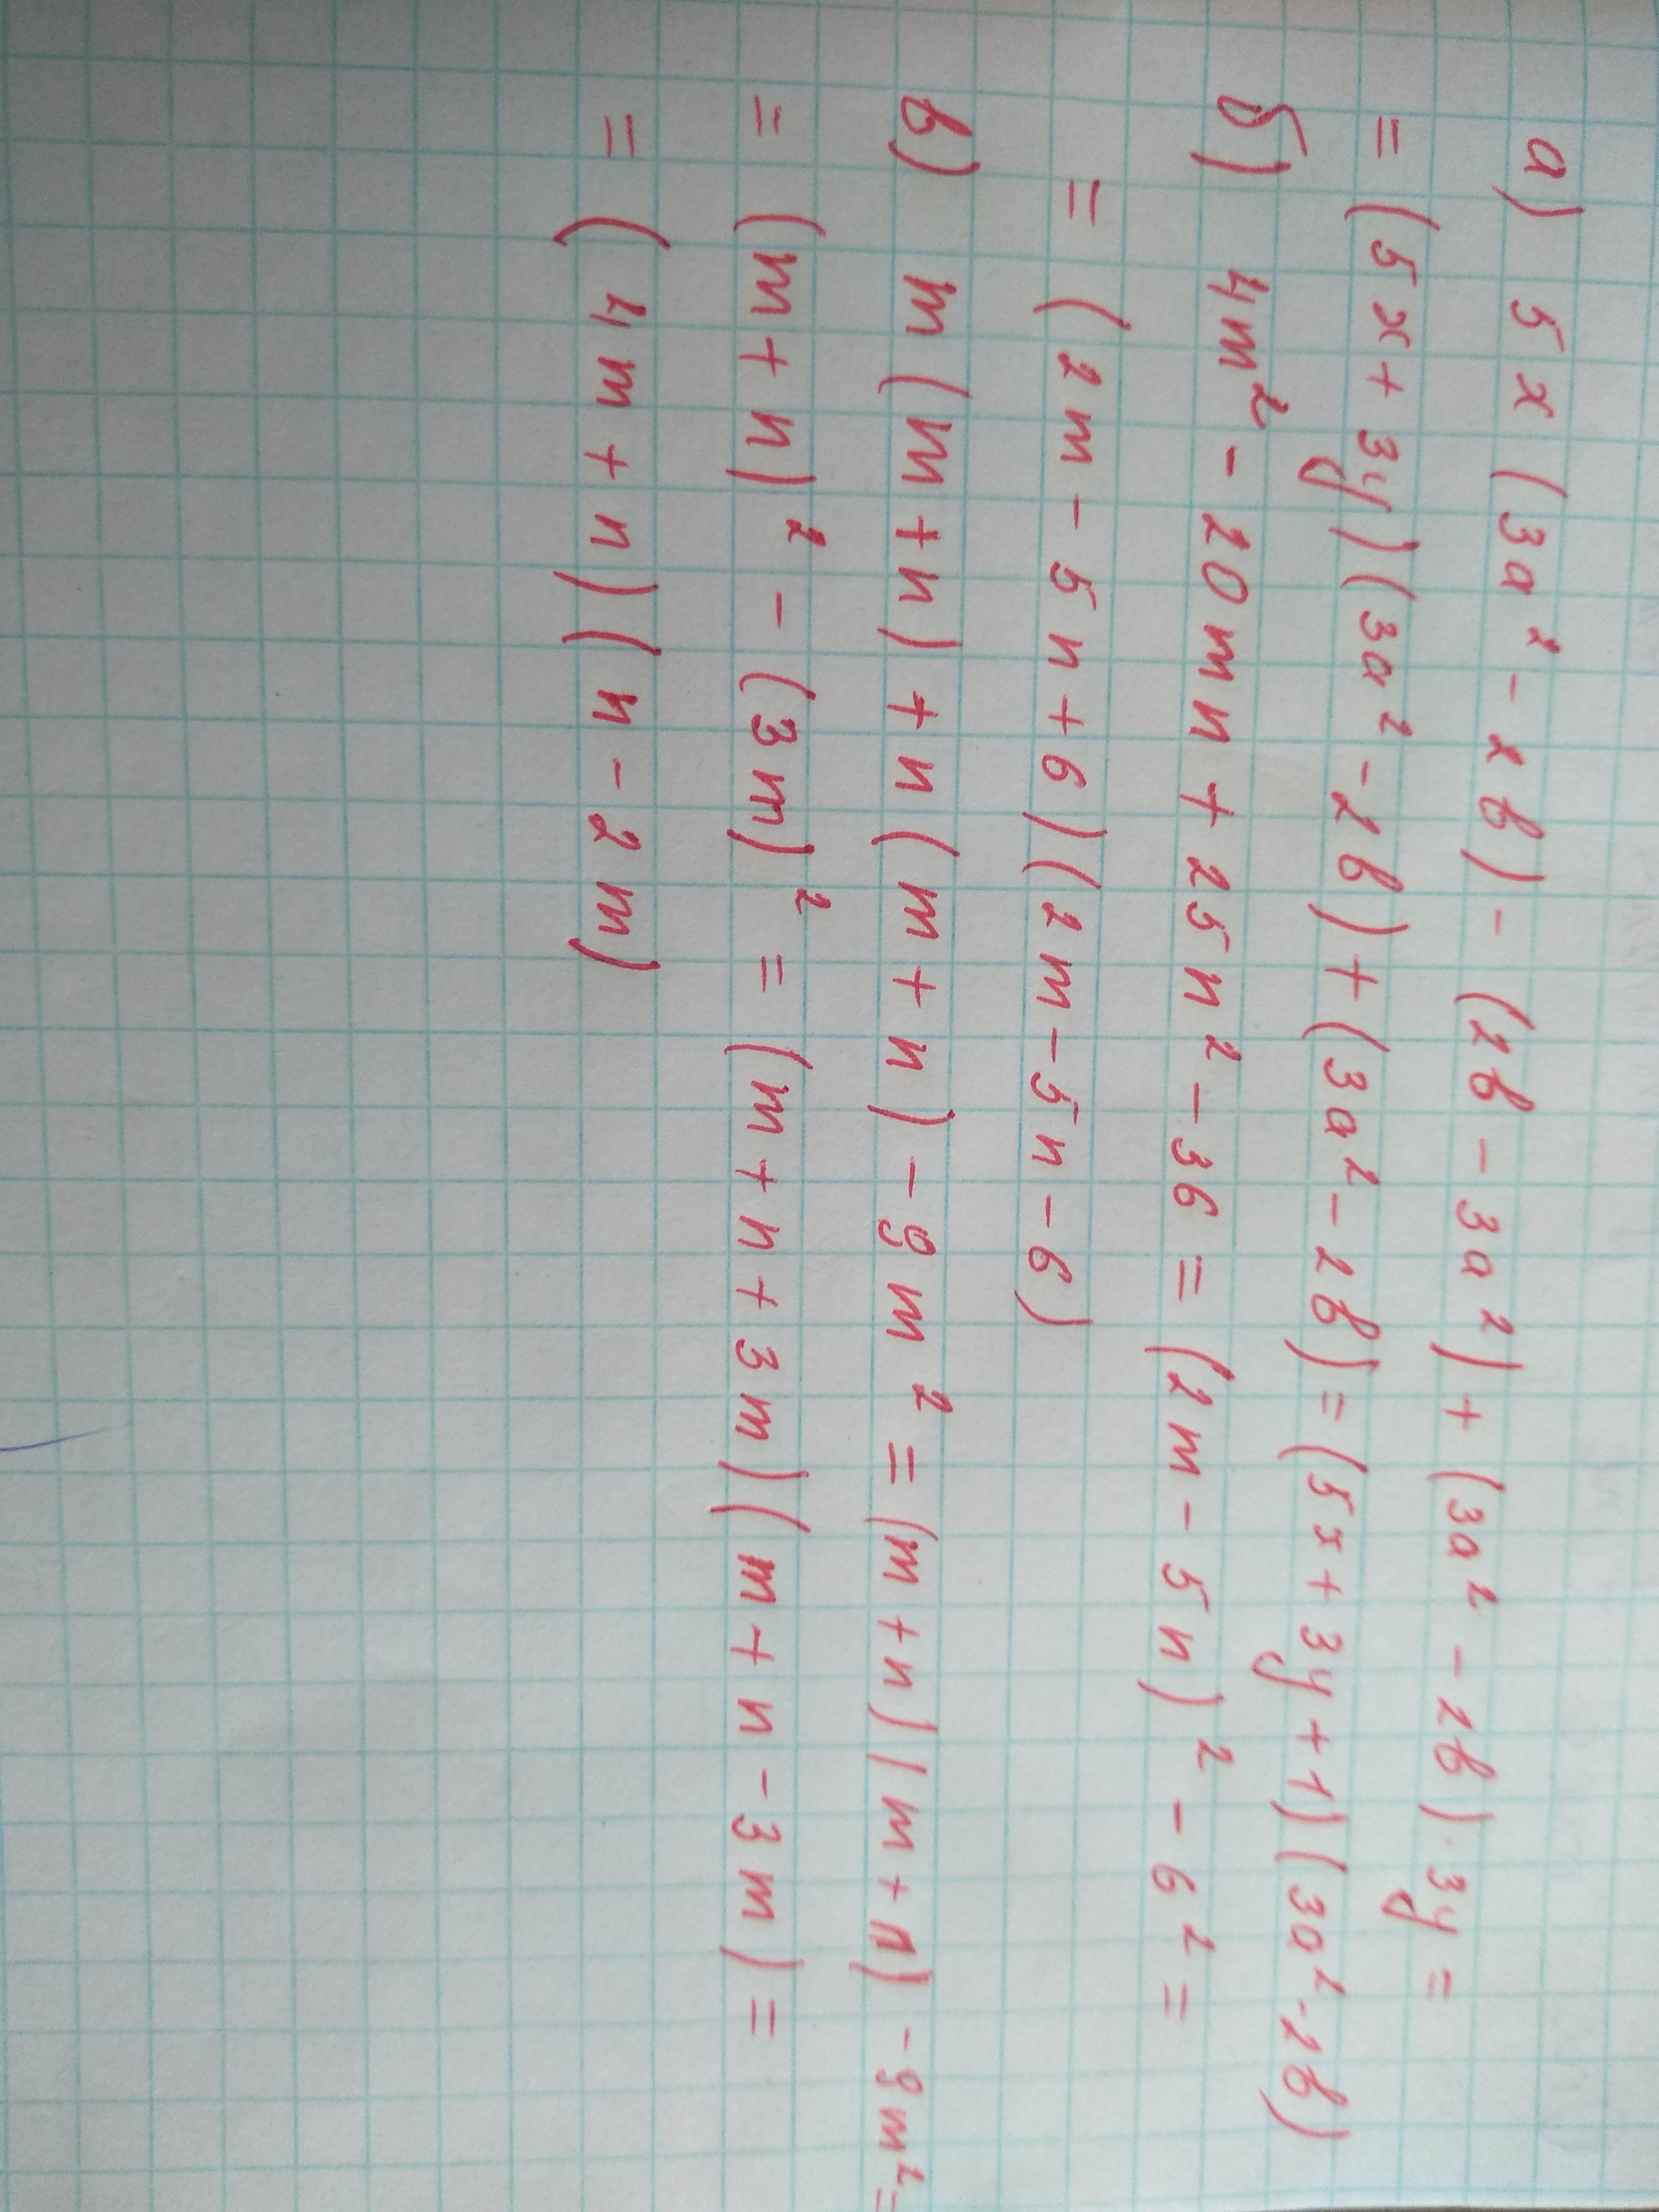 а) 5x(3a² - 2b) - (2b - 3a²) + (3a² - 2b)·3y =
= (5x + 3y)(3a² - 2b) + (3a² - 2b) = (5x + 3y + 1)(3a² - 2b)
б) 4m² - 20mn + 25n² - 36 = (2m - 5n)² - 6² =
= (2m - 5n + 6)(2m - 5n - 6)
в) m(m + n) + n(m + n) - 9m² = (m + n)(m + n) - 9m² =
= (m + n)² - (3m)² = (m + n + 3m)(m + n - 3m) =
= (4m + n)(n - 2m)